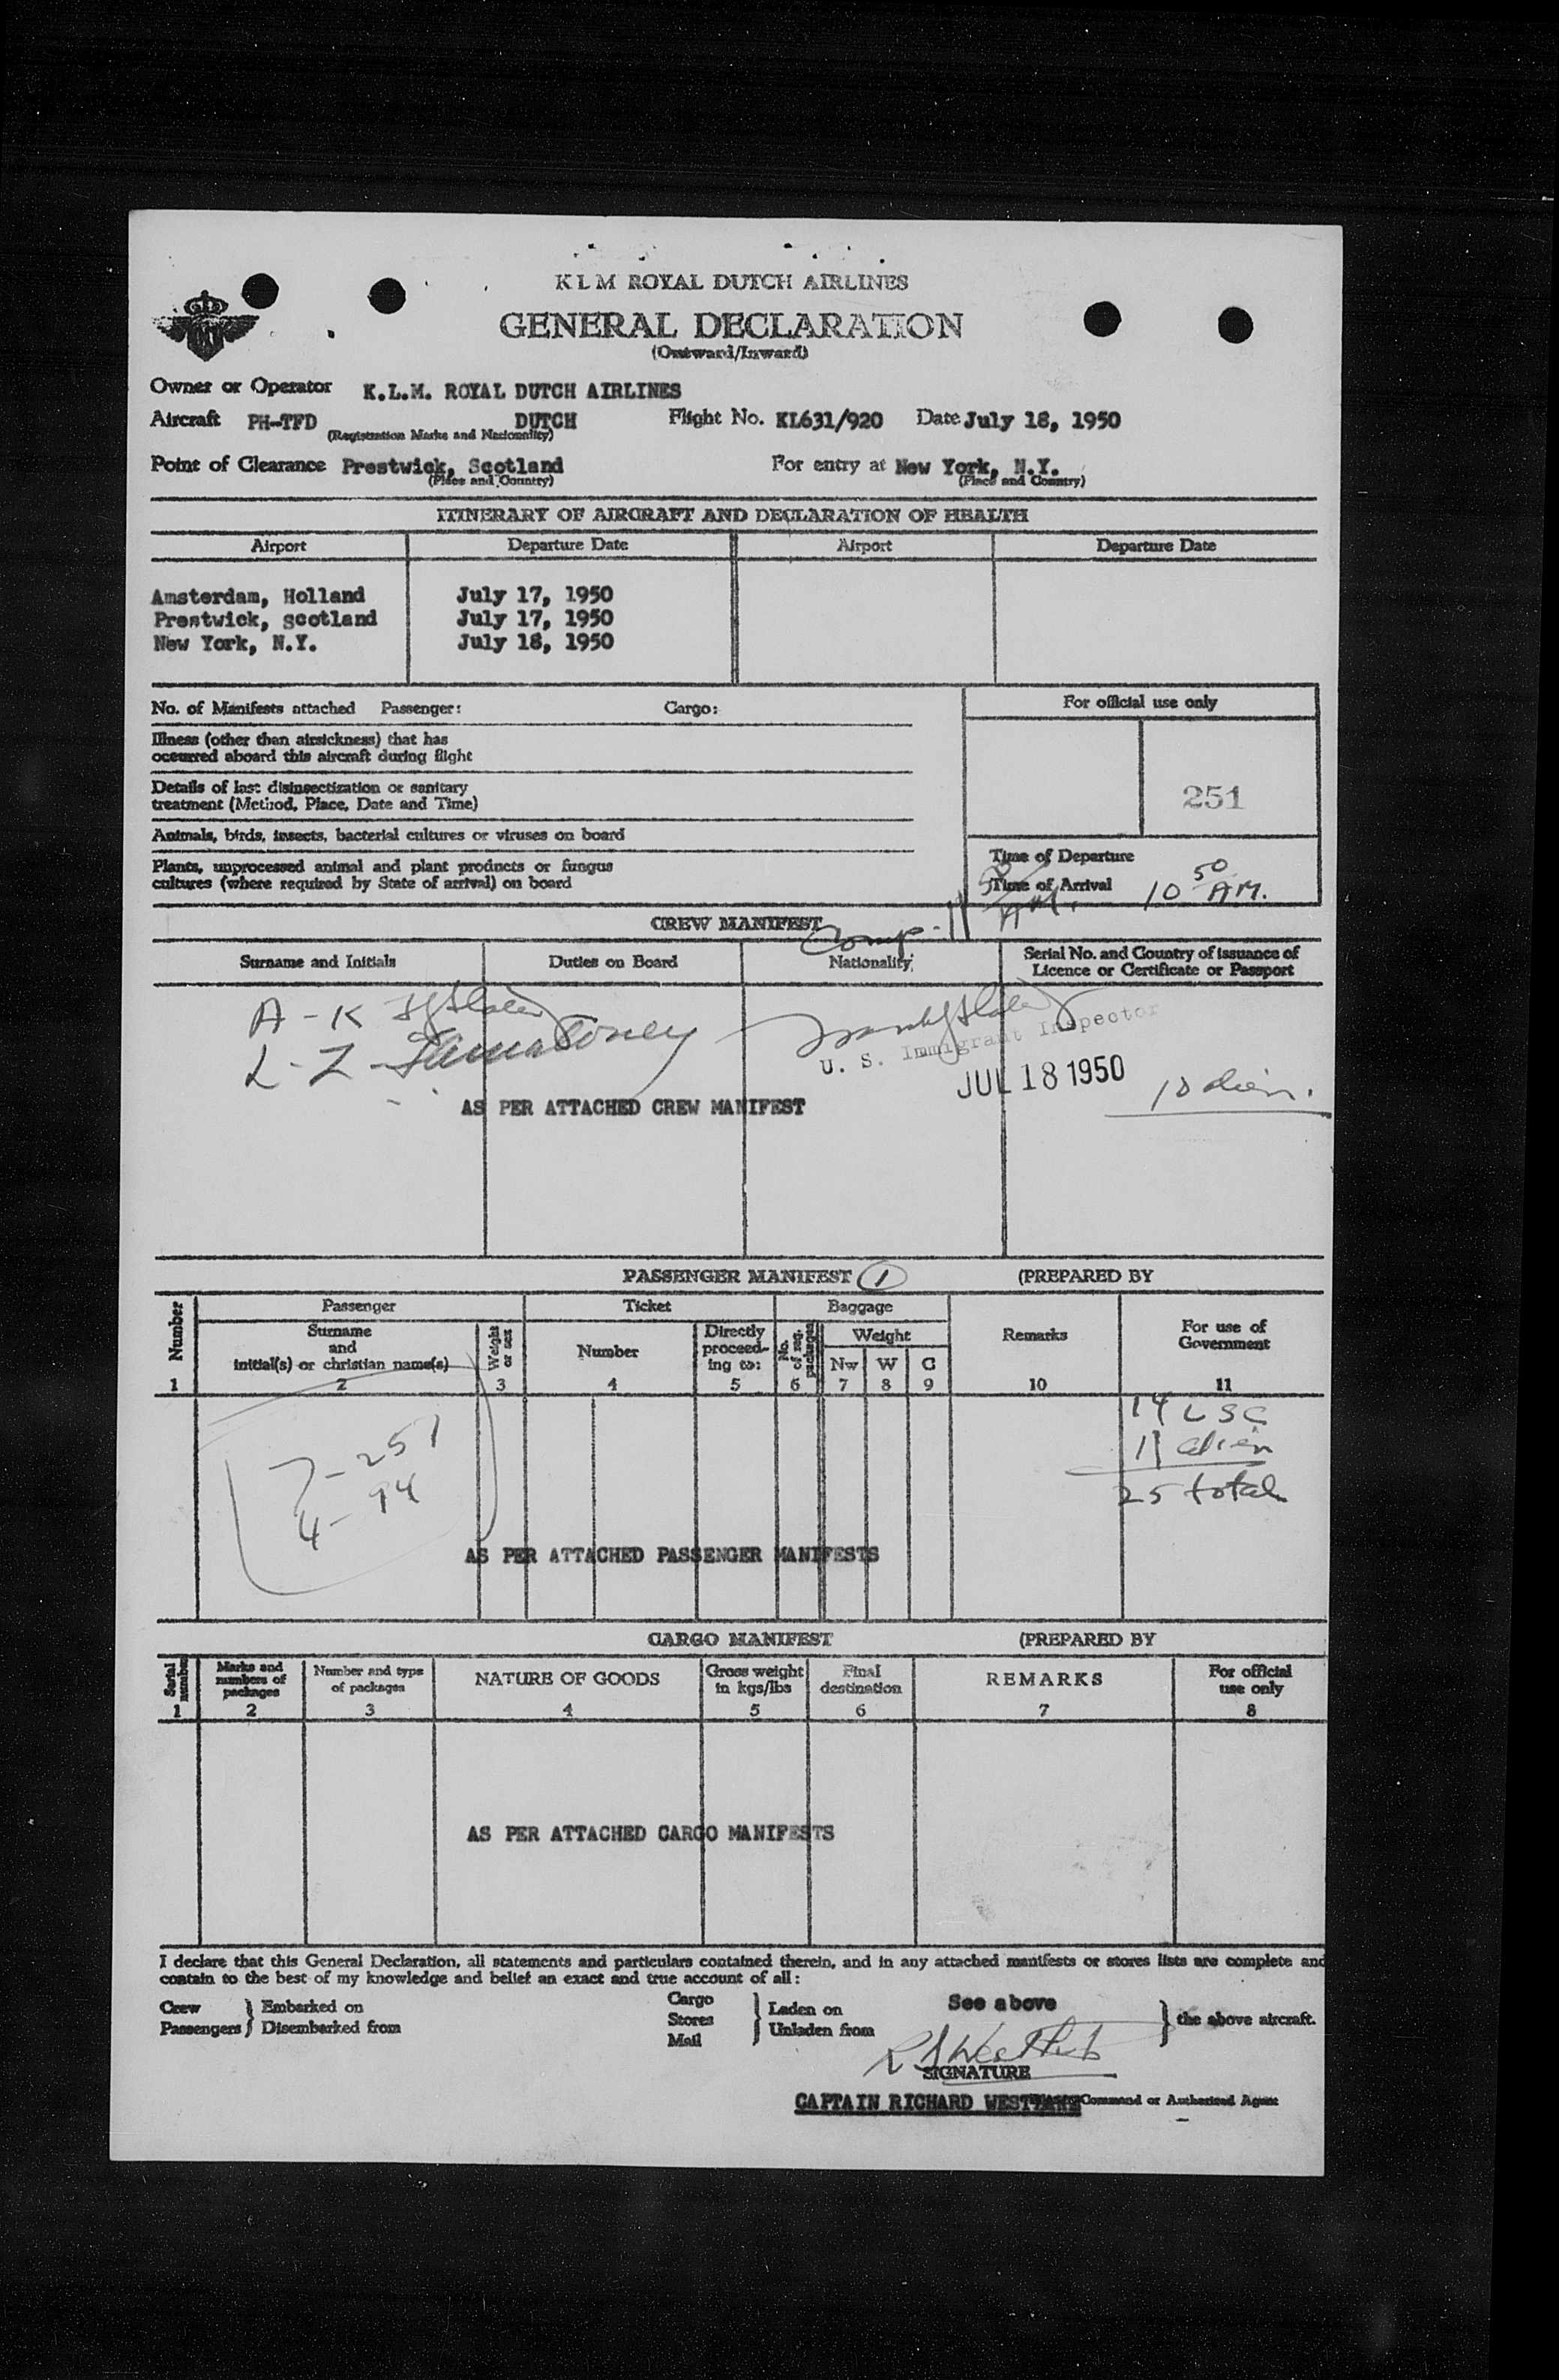 KLM ROYAL DUTCH AIRLINES
GENERAL DECLARATION
(Outward/Inward)
Owner or Operator K.L.M. ROYAL DUTCH AIRLINES
Aircraft PH-TFD DUTCH Flight No. KL631/920 Date July 18, 1950
(Registration Marks and Nationality)
Point of Clearance Prestwick, Scotland For entry at New York, N.Y.
(Place and Country) (Place and Country)
ITINERARY OF AIRCRAFT AND DECLARATION OF HEALTH
Airport Departure Date Airport Departure Date
Amsterdam, Holland July 17, 1950
Prestwick, scotland July 17, 1950
New York, N.Y. July 18, 1950
No. of Manifests attached Passenger: Cargo: For official use only
Illness (other than airsickness) that has
occurred aboard this aircraft during flight
Details of last disinsectization or sanitary
treatment (Method, Place, Date and Time)
251
Animals, birds, insects, bacterial cultures or viruses on board
Plants, unprocessed animal and plant products or fungus
cultures (where required by State of arrival) on board
Time of Departure
Time of Arrival 10 50 AM.
CREW MANIFEST
Comp - 11 50 AM.
Surname and Initials Duties on Board Nationality Serial No. and Country of issuance of
Licence or Certificate or Passport
A - K
L - Z
U. S. Immigrant Inspector
JUL 18 1950
10 alien.
AS PER ATTACHED CREW MANIFEST
PASSENGER MANIFEST 1 (PREPARED BY
Number Passenger Ticket Baggage Remarks For use of
Government
Surname
and
initial(s) or christian name(s)
Weight
or sex
Number Directly
proceed-
ing to:
No.
of reg.
packages
Weight
Nw W C
1 2 3 4 5 6 7 8 9 10 11
14 USC
11 alien
25 total
7 - 251
4 - 94
AS PER ATTACHED PASSENGER MANIFESTS
CARGO MANIFEST (PREPARED BY
Serial
number
Marks and
numbers of
packages
Number and type
of packages
NATURE OF GOODS
Gross weight
in kgs/lbs
Final
destination
REMARKS
For official
use only
1 2 3 4 5 6 7 8
AS PER ATTACHED CARGO MANIFESTS
I declare that this General Declaration, all statements and particulars contained therein, and in any attached manifests or stores lists are complete and
contain to the best of my knowledge and belief an exact and true account of all:
Crew
Passengers
Embarked on
Disembarked from
Cargo
Stores
Mail
Laden on
Unladen from
See above
the above aircraft.
SIGNATURE
CAPTAIN RICHARD Command or Authorised Agent